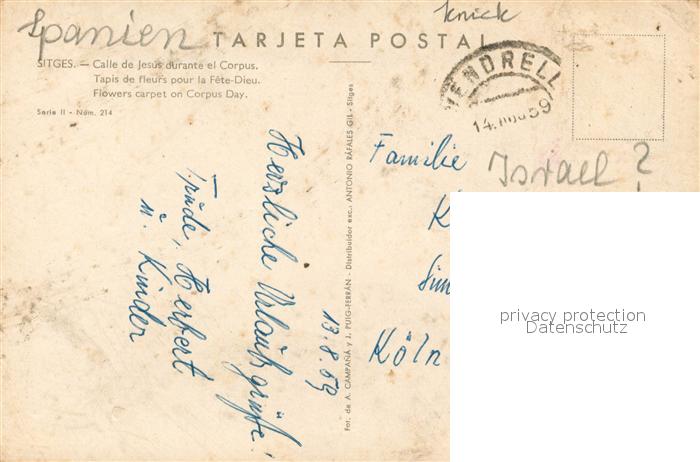 knick
Spanien
TARJETA POSTAL
SITGES. — Calle de Jesús durante el Corpus.
Tapis de fleurs pour la Fête-Dieu.
Flowers carpet on Corpus Day.
Serie II - Núm. 214
VENDRELL
14. 59
Fot. de A. CAMPAÑÁ y J. PUIG-FERRÁN - Distribuidor exc.: ANTONIO RÁFALES GIL - Sitges
13.8.59
Herzliche Urlaubsgrüße!
Trude, Herbert
u. Kinder
Familie
Israel?
K
Sim
Köln
privacy protection
Datenschutz